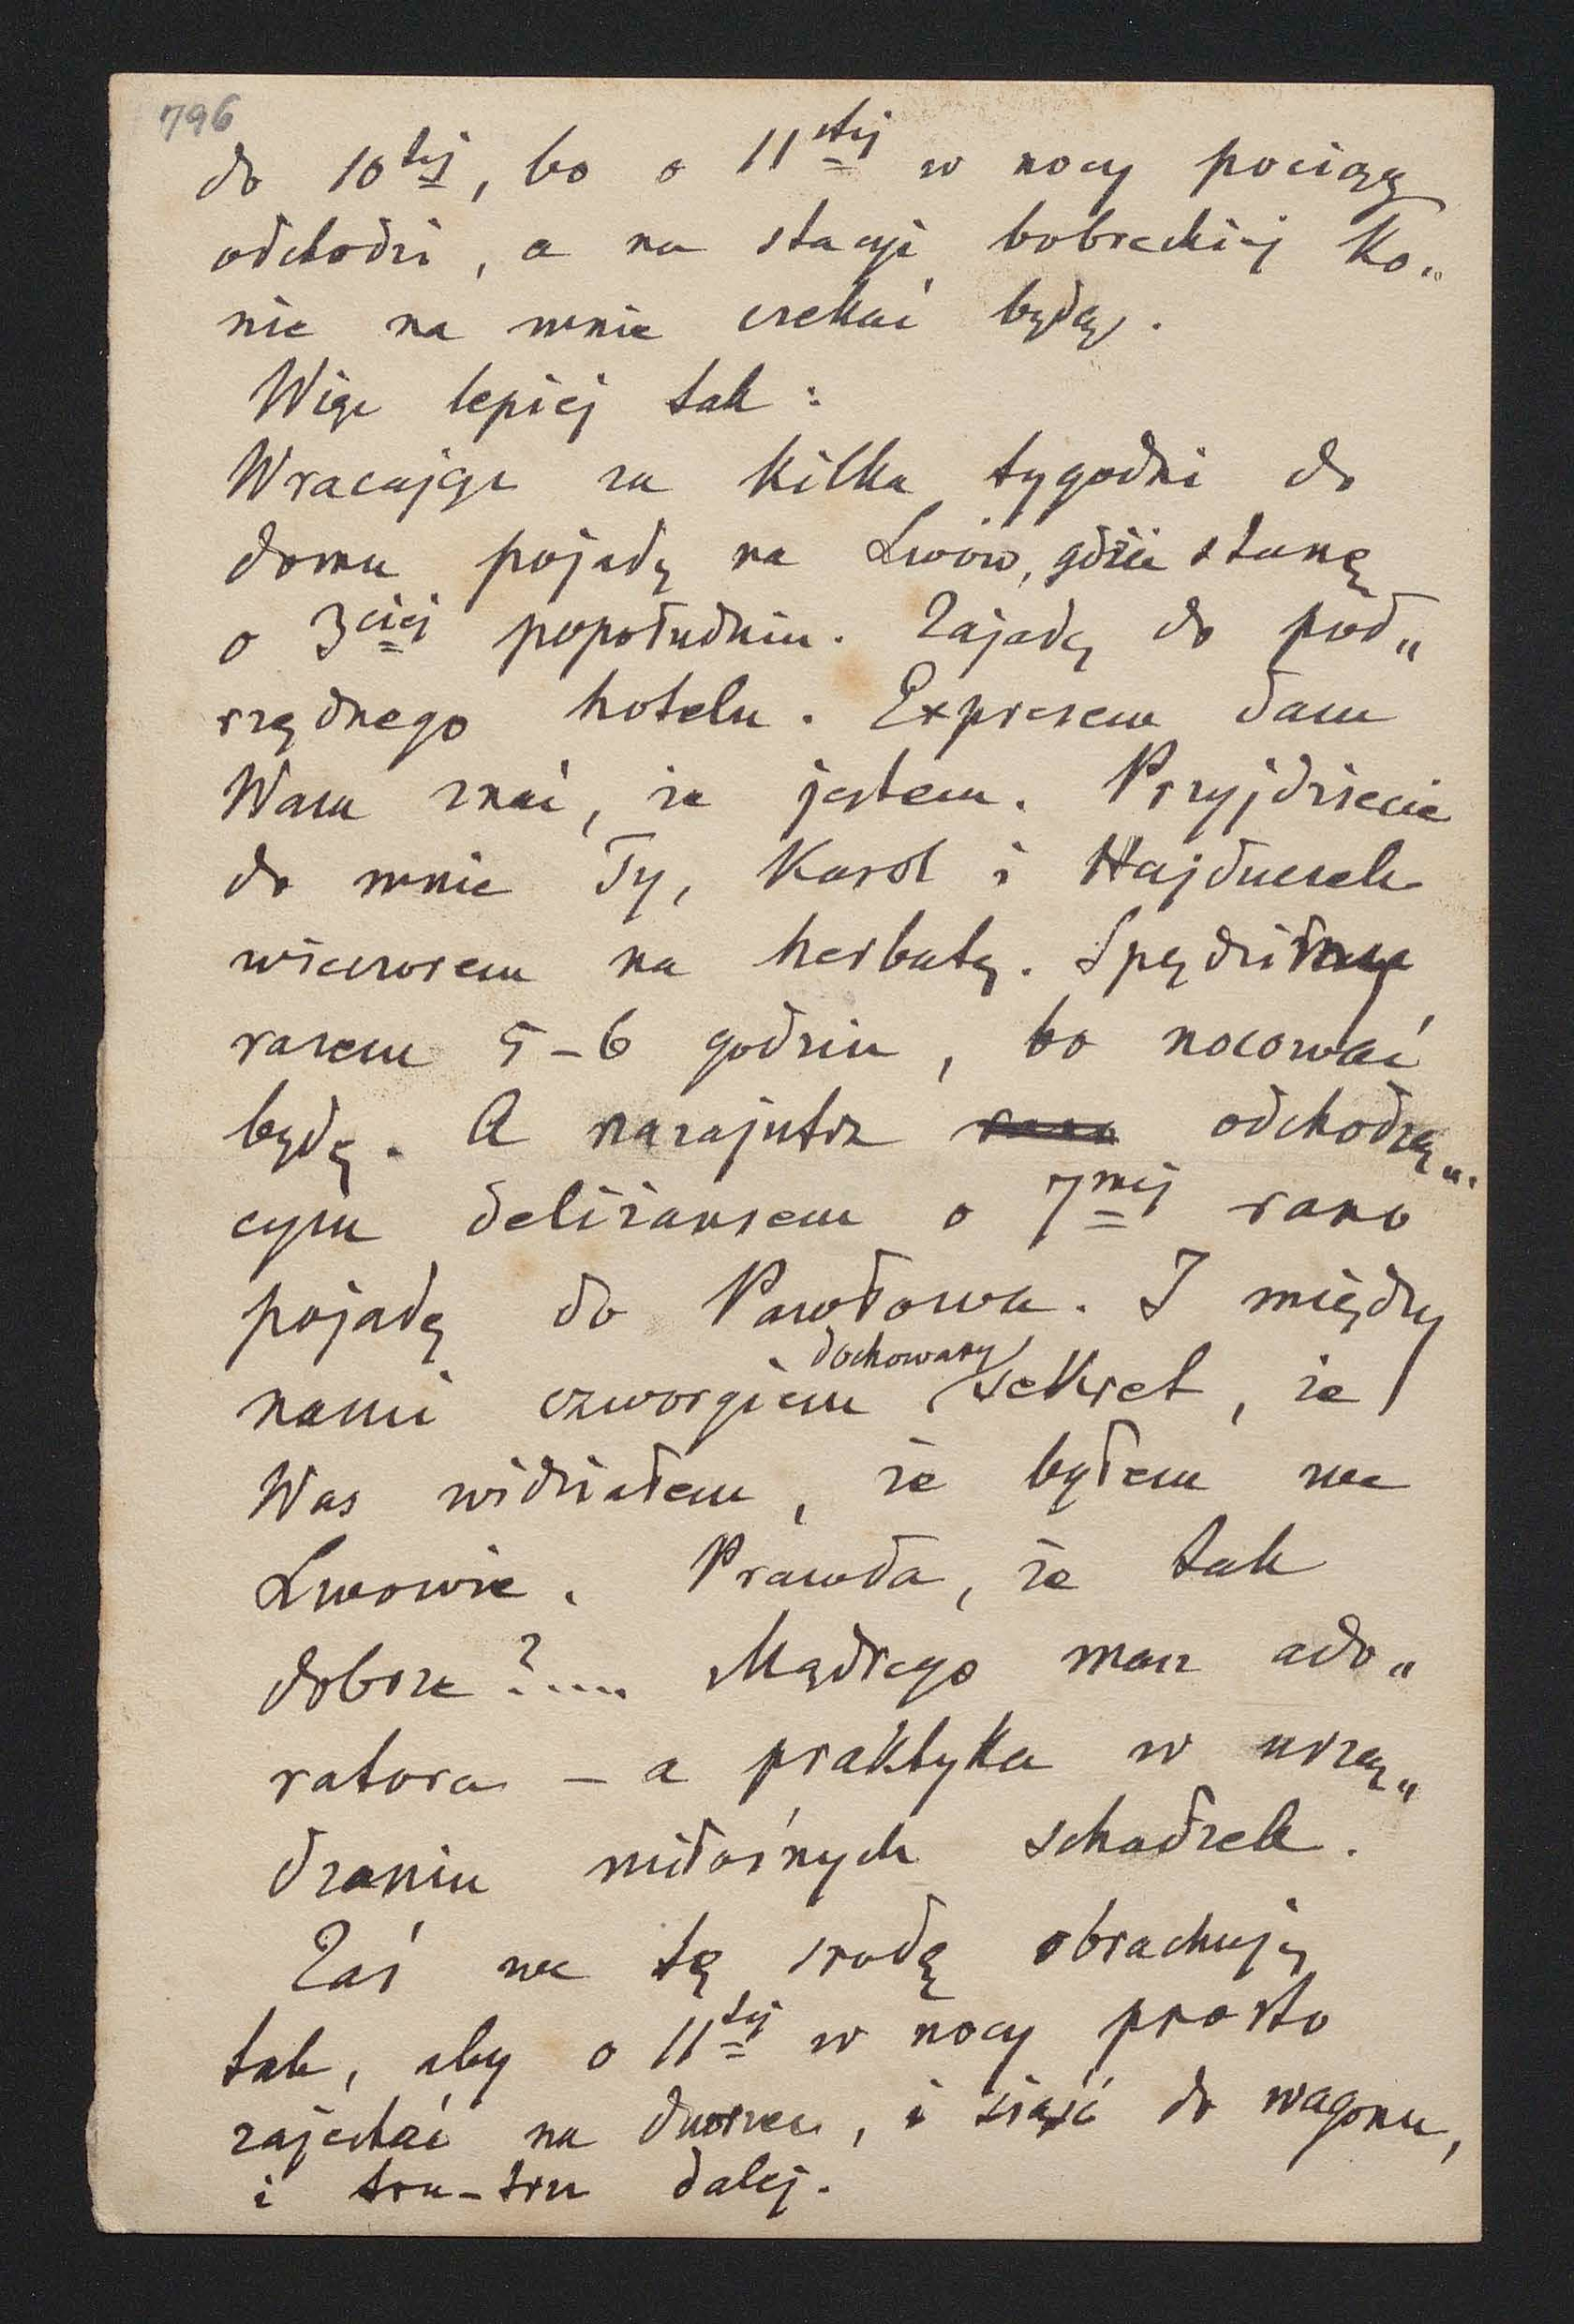 796
do 10tej, bo o 11stej w nocy pociąg
odchodzi, a na stacyi bobreckiej ko„
nie na mnie czekać będą.
Więc lepiej tak:
Wracając za kilka tygodni do
domu pojadę na Lwów, gdzie stanę
o 3ciej popołudniu. Zajadę do pod„
rzędnego hotelu. Expresem dam
Wam znać, że jestem. Przyjdziecie
do mnie Ty, Karol i Hajduczek
wieczorem na herbatę. Spędzimy
razem 5–6 godzin, bo nocować
będę. A nazajutrz rano odchodzą„
cym deliżansem o 7mej rano
pojadę do Pawłowa. I między
dochowany
nami czworgiem sekret, że
Was widziałem, że byłem we
Lwowie. Prawda, że tak
dobrze?.... Mądrego masz ado„
ratora – a praktyka w urzą„
dzaniu miłośnych schadzek.
Zaś we tę srodę obrachuję
tak, aby o 11tej w nocy prosto
zajechać na dworzec, i siąść do wagonu,
i tru–tru dalej.